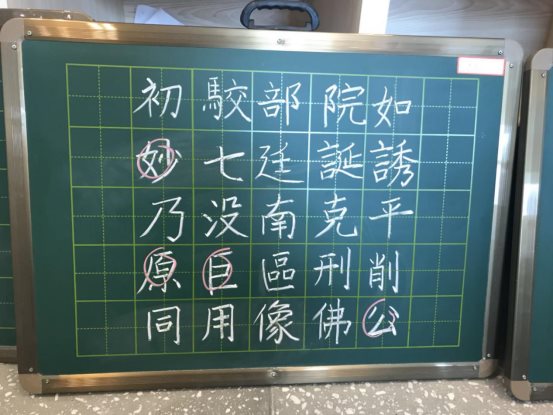 初駮部院如
妙七廷誕誘
乃没南克平
原巨區刑削
同用像佛公